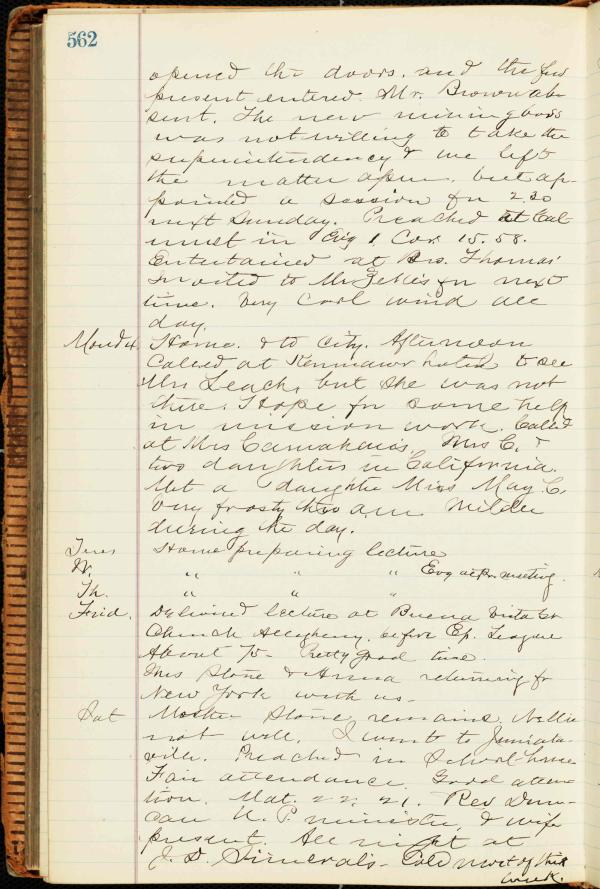 562
opened the doors. and the few
present entered. Mr. Brown ab-
sent. The new mining boss
was not willing to take the
superintendency & we left
the matter open. but ap-
pointed a session for 2.30
next Sunday. Preached at Cal
umet in Evg 1 Cor. 15.58.
Entertained at Bro. Thomas'
Invited to Mr. for next
time. Very cool wind all
day.
Monday. Home. & to City. Afternoon
Called at Kenmawr hotel to see
Mrs Leach, but she was not
there. Hope for some help
in mission work. Called
at Mrs Mrs C. &
two daughters in California.
Met a daughter Miss May C.
Very frosty this a.m. Milder
during the day.
Tues Home preparing lecture
W. " " " Evg at Pr. meeting.
Th. " " "
Frid. Delivered lecture at Buena Vista St
Church Allegheny. before Ep. League
About 75- Pretty good time.
Mrs Stone & Anna returning fr
New York with us.
Sat Mother Stone remains. Nellie
not well. I went to Juniata-
ville. Preached in School house
Fair attendance. Good atten-
tion. Mat. 22. 21. Rev Dun-
can U. P. minister & wife
present. All night at
J. D. Cold most of this
week.